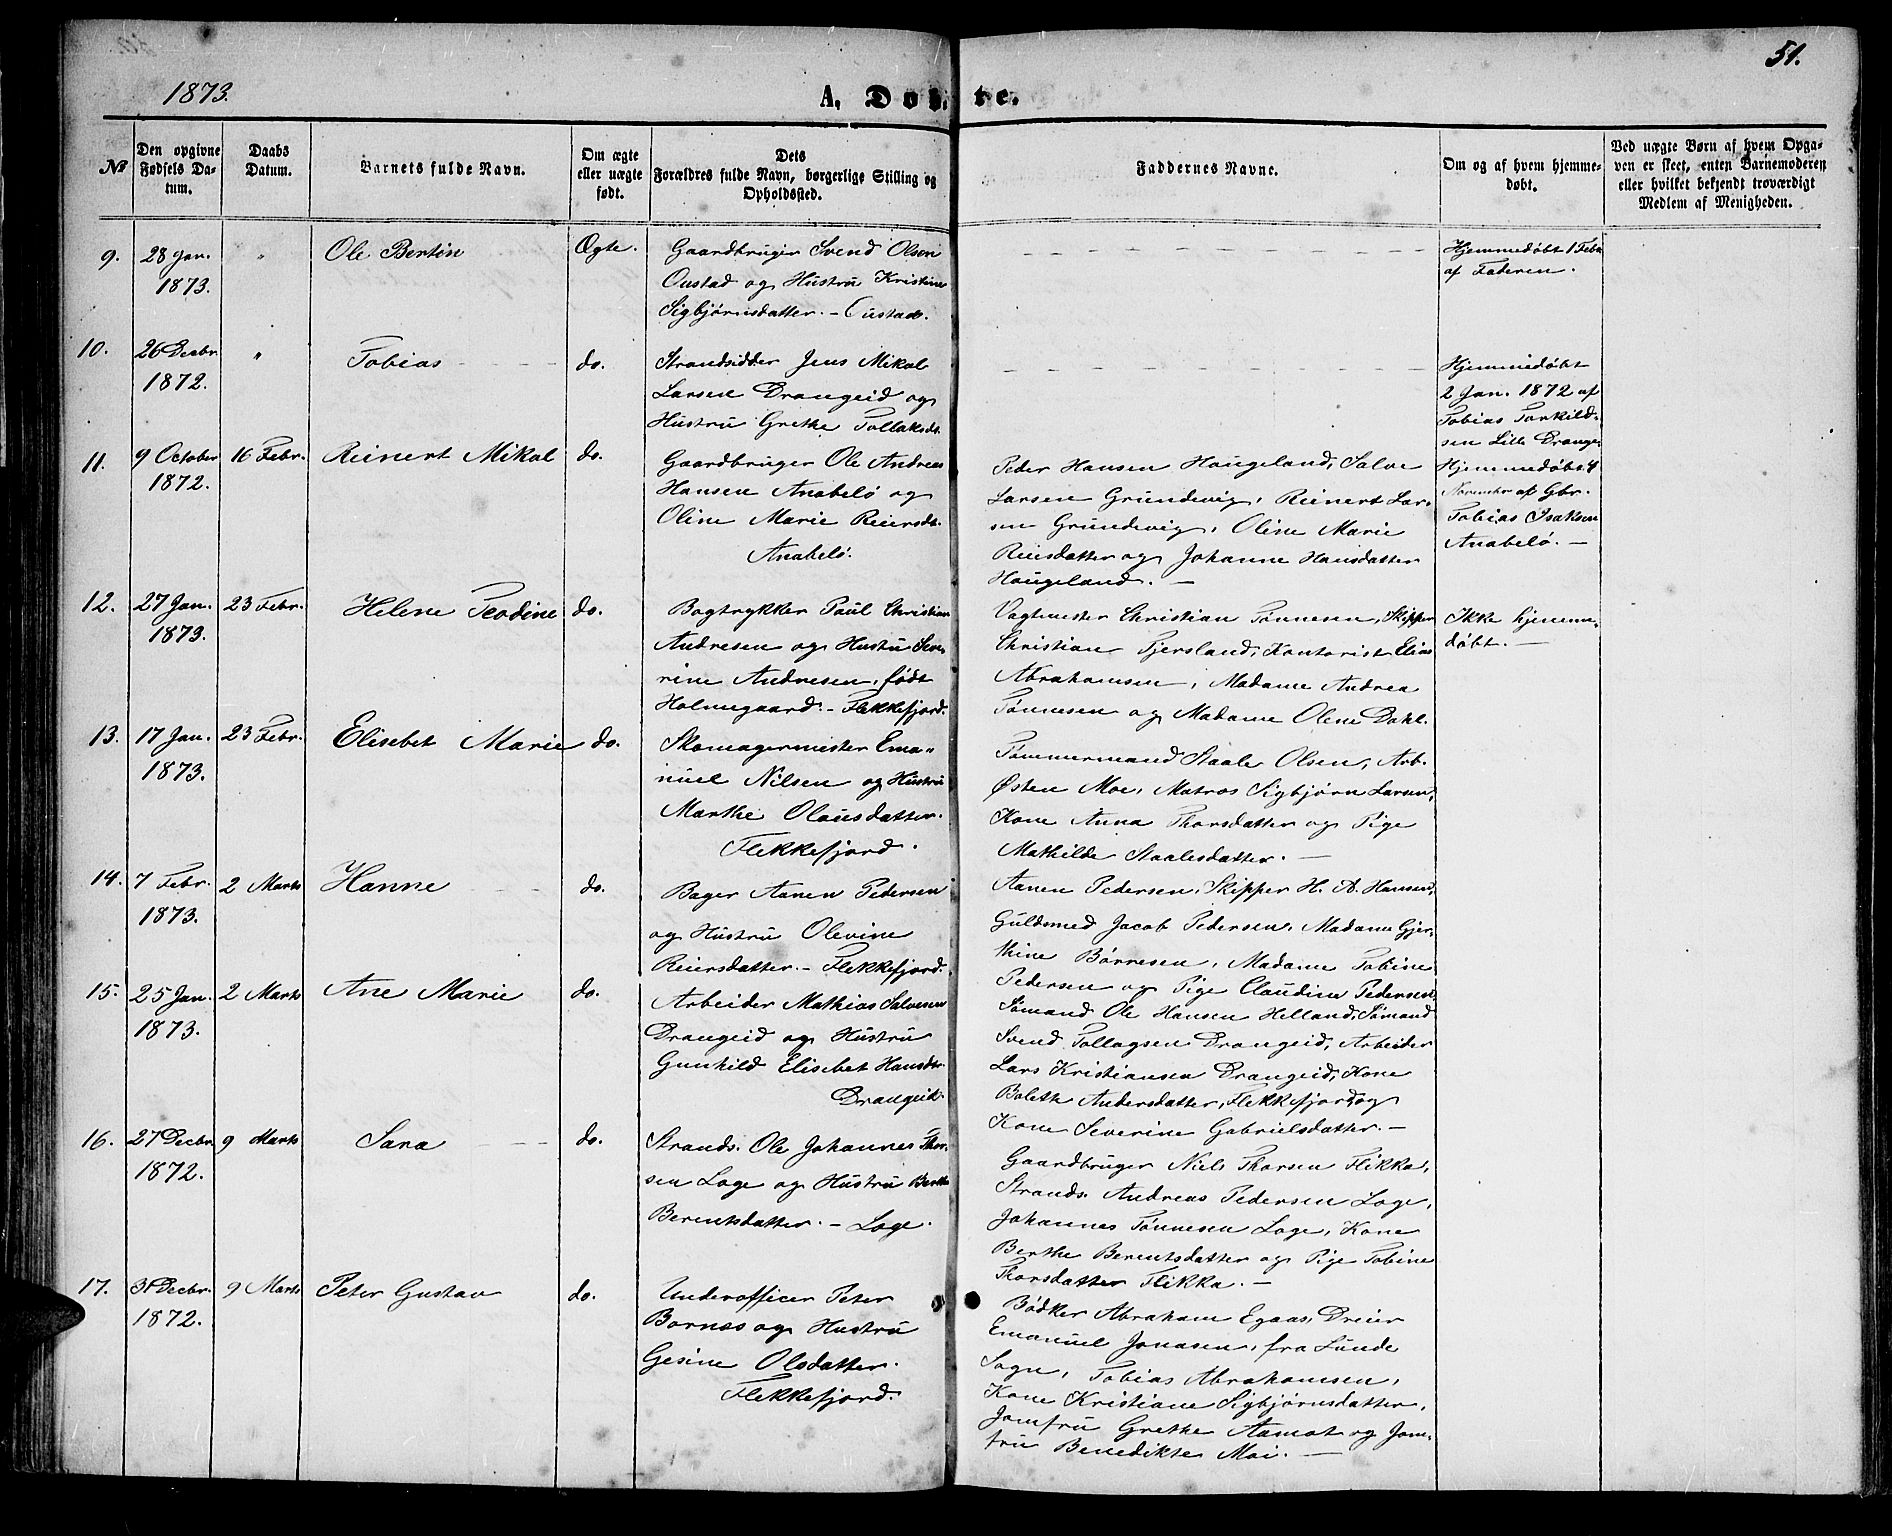 51.
1873.
A. Døbte.
№
Den opgivne Fødsels Datum.
Daabs Datum.
Barnets fulde Navn.
Om ægte eller uægte født.
Dets Forældres fulde Navn, borgerlige Stilling og Opholdssted.
Faddernes Navne.
Om og af hvem hjemmedøbt.
Ved uægte Børn af hvem Opgaven er skeet, enten Barnemoderen eller hvilket bekjendt troværdigt Medlem af Menigheden.
9.
28 Jan.
1873.
"
Ole Bertin
Ægte.
Gaardbruger Svend Olsen
Oustad og Hustru Kristine
Sigbjørnsdatter. - Oustad.
Hjemmedøbt 1 Febr
af Faderen.
10.
26 Decbr
1872.
"
Tobias
do.
Strandsidder Jens Mikal
Larsen Drangeid og
Hustru Grethe Tollaksdt.
Hjemmedøbt
2 Jan. 1872 af
Tobias Torkild-
sen Lille Drange
11.
9 October
1872.
16 Febr.
Reinert Mikal
do.
Gaardbruger Ole Andreas
Hansen Anabelø og
Oline Marie Reiersdt.
Anabelø.
Peder Hansen Haugeland, Salve
Larsen Grundevig, Reinert Lar-
sen Grundevig, Oline Marie
Reiersdatter og Johanne Hansdatter
Haugeland. -
Hjemmedøbt 4
November af Gbr.
Tobias Isaksen
Anabelø. -
12.
27 Jan.
1873.
23 Febr.
Helene Teodine
do.
Bogtrykker Paul Christian
Andresen og Hustru Seve-
rine Andresen, født
Holmegaard. - Flekkefjord.
Vagtmester Christian Tønnesen, Skipper
Christian Tjersland, Kontorist Elias
Abrahamsen, Madame Andrea
Tønnesen og Madame Olene Dahl.
Ikke hjemme-
døbt. -
13.
17 Jan.
1873.
23 Febr.
Elisebet Marie
do.
Skomagermester Ema-
nuel Nilsen og Hustru
Marthe Olausdatter.
Flekkefjord.
Tømmermand Staale Olsen, Arb.
Østen Moe, Matros Sigbjørn Larsen,
Kone Anna Thorsdatter og Pige
Mathilde Staalesdatter. -
14.
7 Febr.
1873.
2 Marts
Hanne
do.
Bager Aanen Pedersen
og Hustru Olevine
Reiersdatter. - Flekkefjord.
Aanen Pedersen, Skipper H. A. Hansen,
Guldsmed Jacob Pedersen, Madame Gjer-
thine Børresen, Madame Tobine
Pedersen og Pige Claudine Pedersen
15.
25 Jan.
1873.
2 Marts
Ane Marie
do.
Arbeider Mathias Salvesen
Drangeid og Hustru
Gunhild Elisebet Hansdtr.
Drangeid.
Sømand Ole Hansen Helland, Sømand
Svend Tollagsen Drangeid, Arbeider
Lars Kristiansen Drangeid, Kone
Bolette Andersdatter, Flekkefjord og
Kone Severine Gabrielsdatter. -
16.
27 Decbr
1872.
9 Marts
Sara
do.
Strands. Ole Johannes Thor-
sen Loge og Hustru Berthe
Berentsdatter. - Loge.
Gaardbruger Niels Thorsen Flikka,
Strands. Andreas Pedersen Loge,
Johannes Tønnesen Loge, Kone
Berthe Berentsdatter og Pige Tobine
Thorsdatter Flikka. -
17.
31 Decbr.
1872.
9 Marts
Peter Gustav
do.
Underofficer Peter
Bornes og Hustru
Gesine Olsdatter.
Flekkefjord.
Bødker Abraham Egaas, Dreier
Emanuel Jonasen, fra Lunde
Sogn, Tobias Abrahamsen,
Kone Kristiane Sigbjørnsdatter,
Jomfru Grethe Aamot og Jom-
fru Benedikte Moi. -